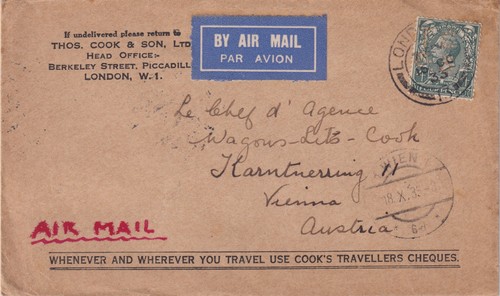 If undelivered please return to
THOS. COOK & SON, LTD
HEAD OFFICE:-
BERKELEY STREET, PICCADILL
LONDON, W.1.
BY AIR MAIL
PAR AVION
LONDON
Le Chef d' Agence
Wagons-Lits-Cook
Karntnerring 11
Vienna
Austria
WIEN 1
18.X.3
AIR MAIL
WHENEVER AND WHEREVER YOU TRAVEL USE COOK'S TRAVELLERS CHEQUES.